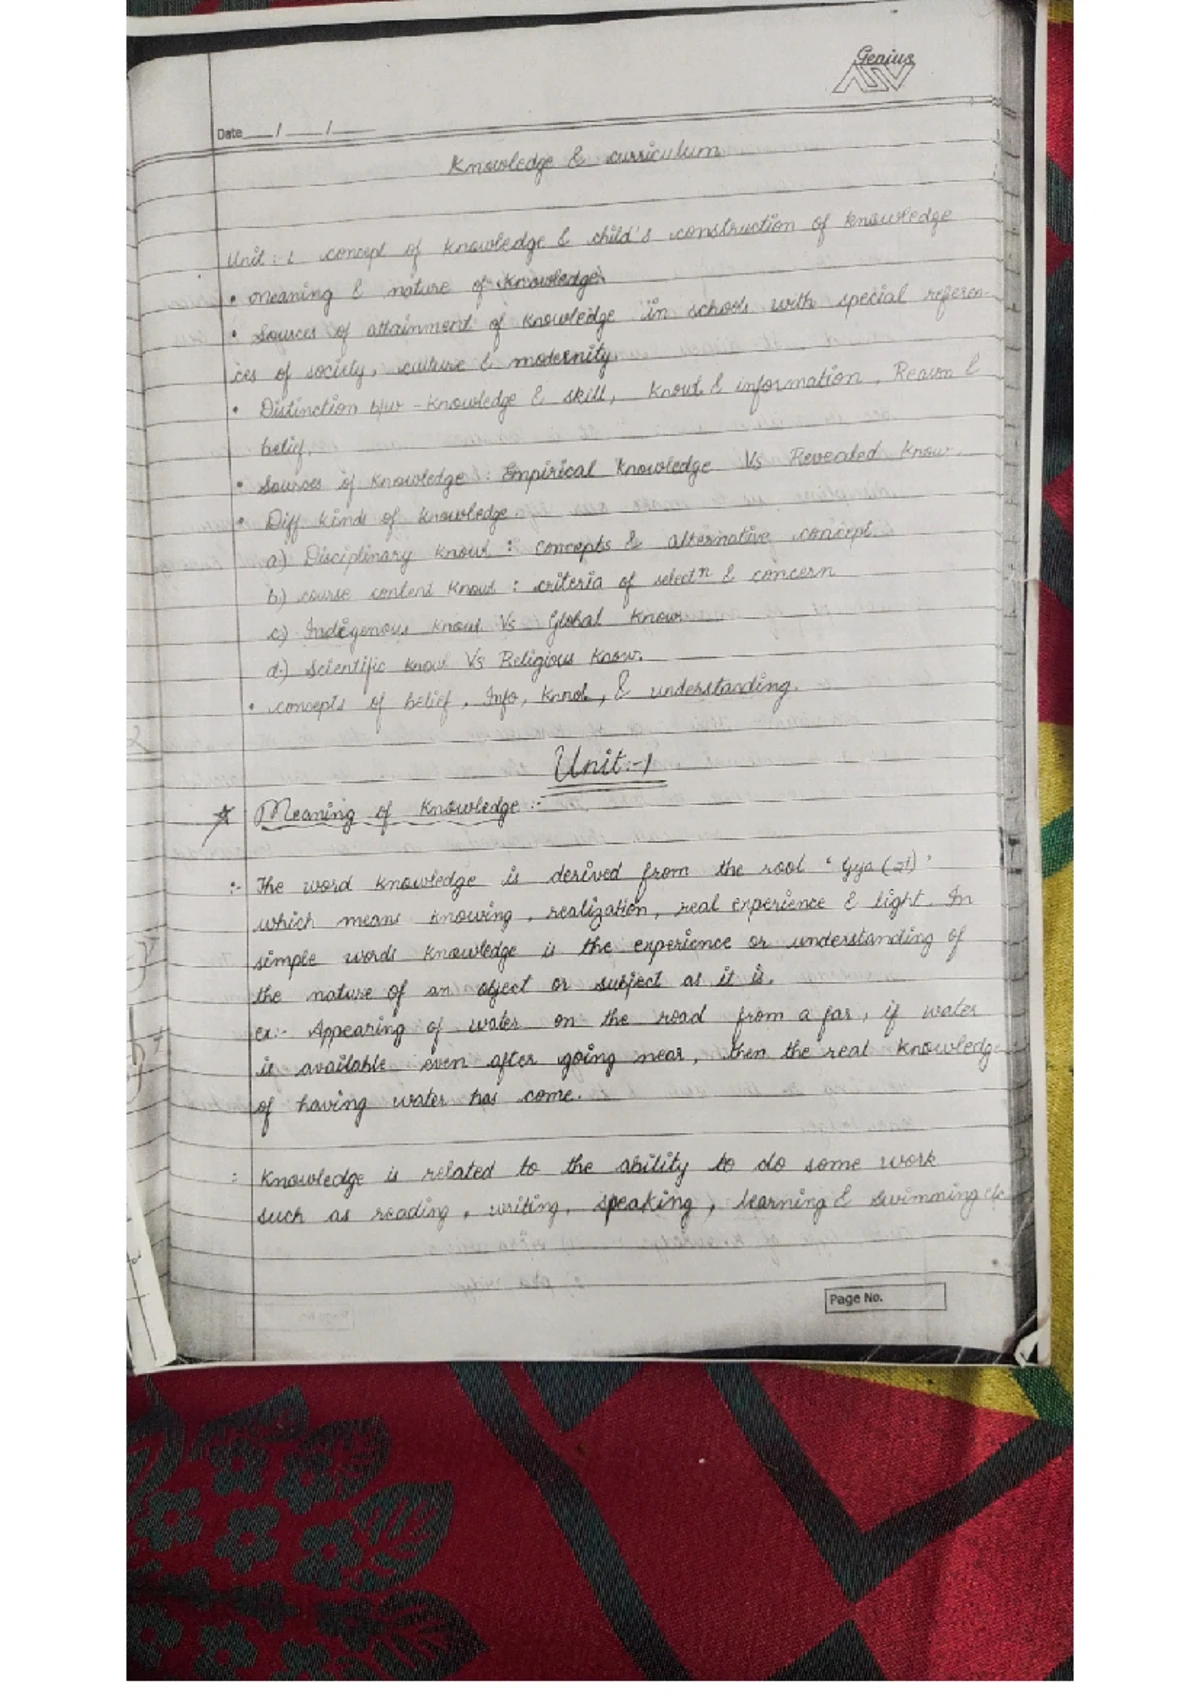 Genius
Date / /
Knowledge & curriculum
Unit :- 1 concept of knowledge & child's construction of knowledge
• Meaning & nature of knowledge.
• Sources of attainment of knowledge in schools with special referen-
ces of society, culture & modernity.
• Distinction b/w - Knowledge & skill, Knowl & information, Reason &
belief.
• Sources of knowledge : Empirical knowledge Vs Revealed know.
• Diff kinds of knowledge
a) Disciplinary knowl : concepts & alternative concept.
b) course content knowl : criteria of selectn & concern
c) Indegenous knowl Vs Global know
d) Scientific knowl Vs Religious know.
• concepts of belief, Info, knnol, & understanding.
Unit :- 1
Meaning of knowledge :-
:- The word knowledge is derived from the root ' Gya ( )'
which means knowing, realization, real experience & light. In
simple words knowledge is the experience or understanding of
the nature of an object or subject as it is.
ex:- Appearing of water on the road from a far, if water
is available even after going near, then the real knowledge
of having water has come.
: Knowledge is related to the ability to do some work
such as reading, writing, speaking, learning & swimming etc
Page No.